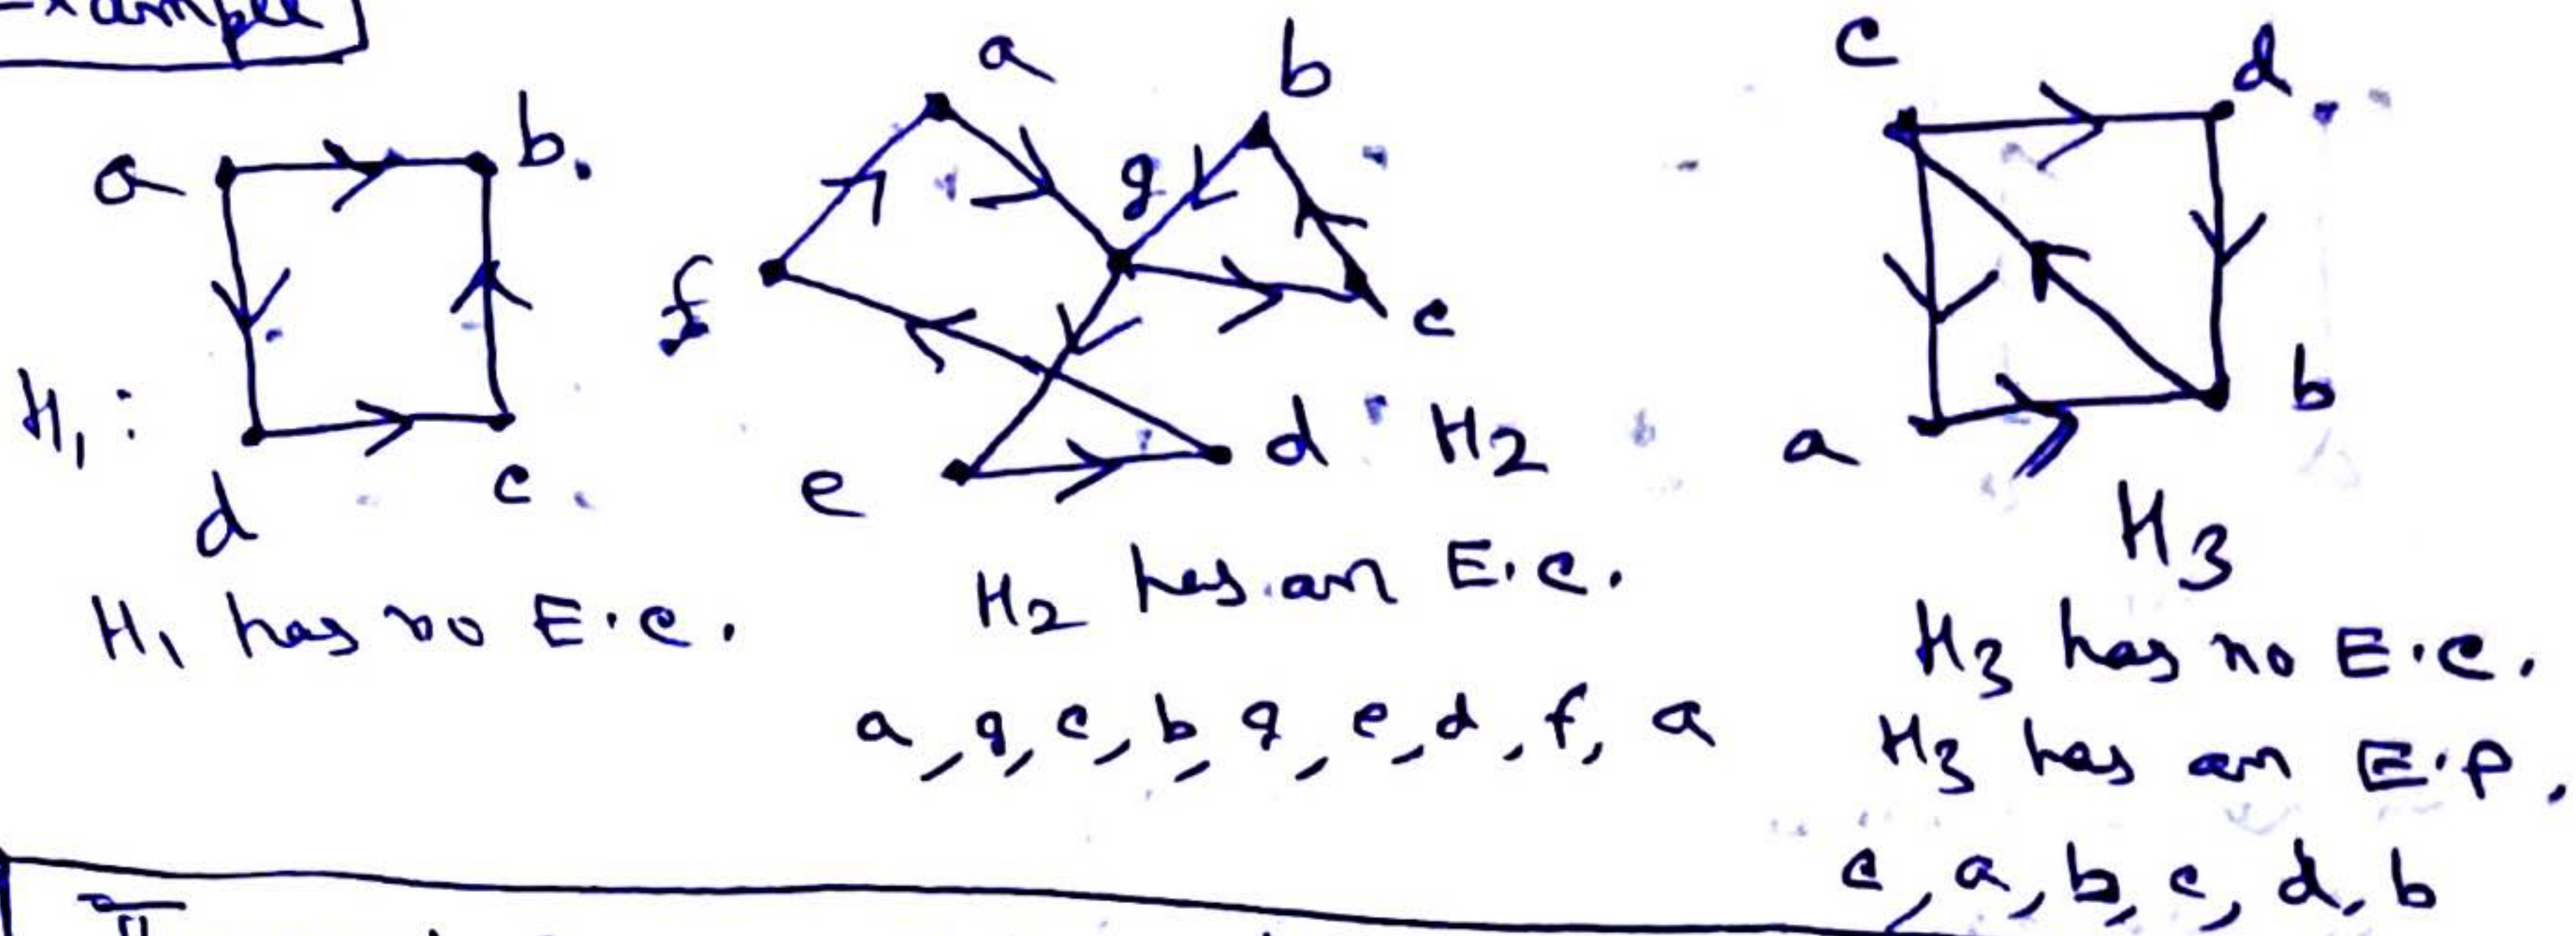 Example
a
b.
d
c
H1:
H1 has no E.C.
a
b
g
f
c
e
d
H2
H2 has an E.C.
a, g, c, b, g, e, d, f, a
c
d
a
b
H3
H3 has no E.C.
H3 has an E.P.
c, a, b, c, d, b